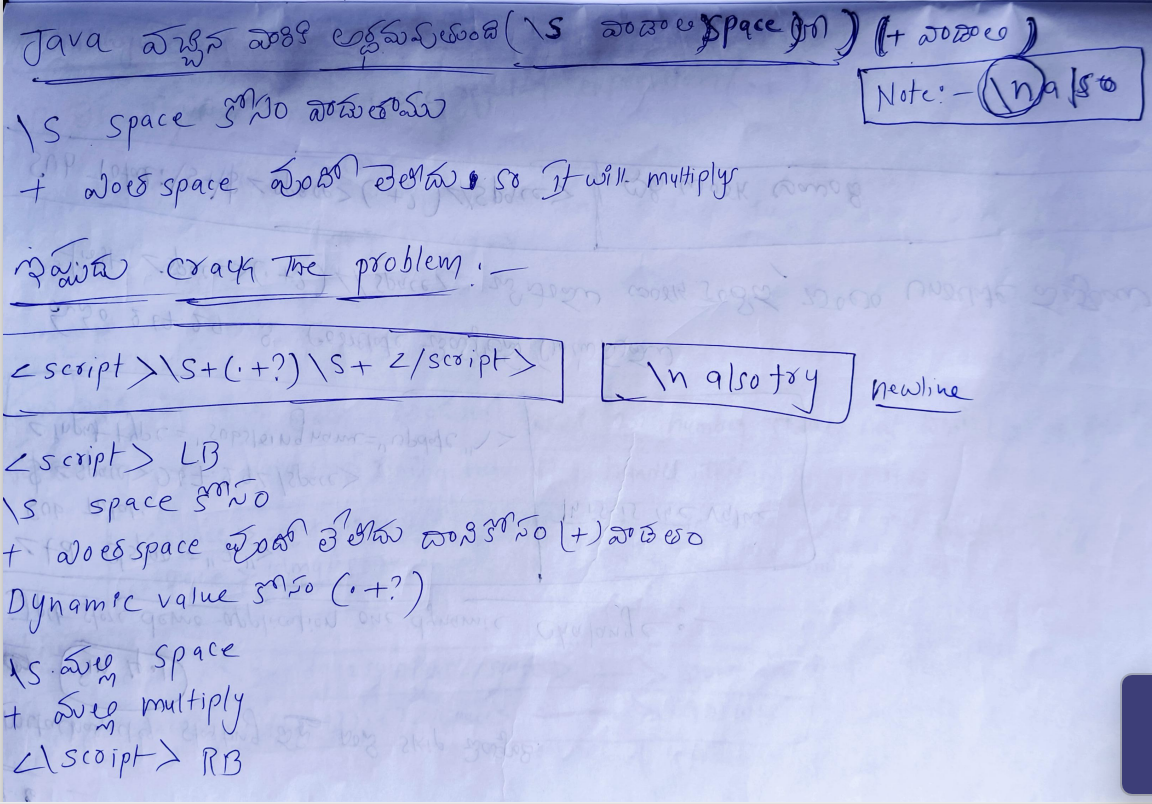 Java వచ్చిన వారికి అర్థమవుతుంది (\s వాడాల space కి) (+ వాడాల)
Note:- \n also
\s space కోసం వాడుతాము
+ ఎంత space వుందో తెలీదు so It will multiplys
ఇప్పుడు crack The problem :-
<script>\s+(.+?)\s+ </script>
\n also try
newline
<script> LB
\s space కోసం
+ ఎంత space వుందో తేలీదు దానికోసం (+) వాడతాం
Dynamic value కోసం (.+?)
\s మల్లి space
+ మల్లి multiply
<\script> RB